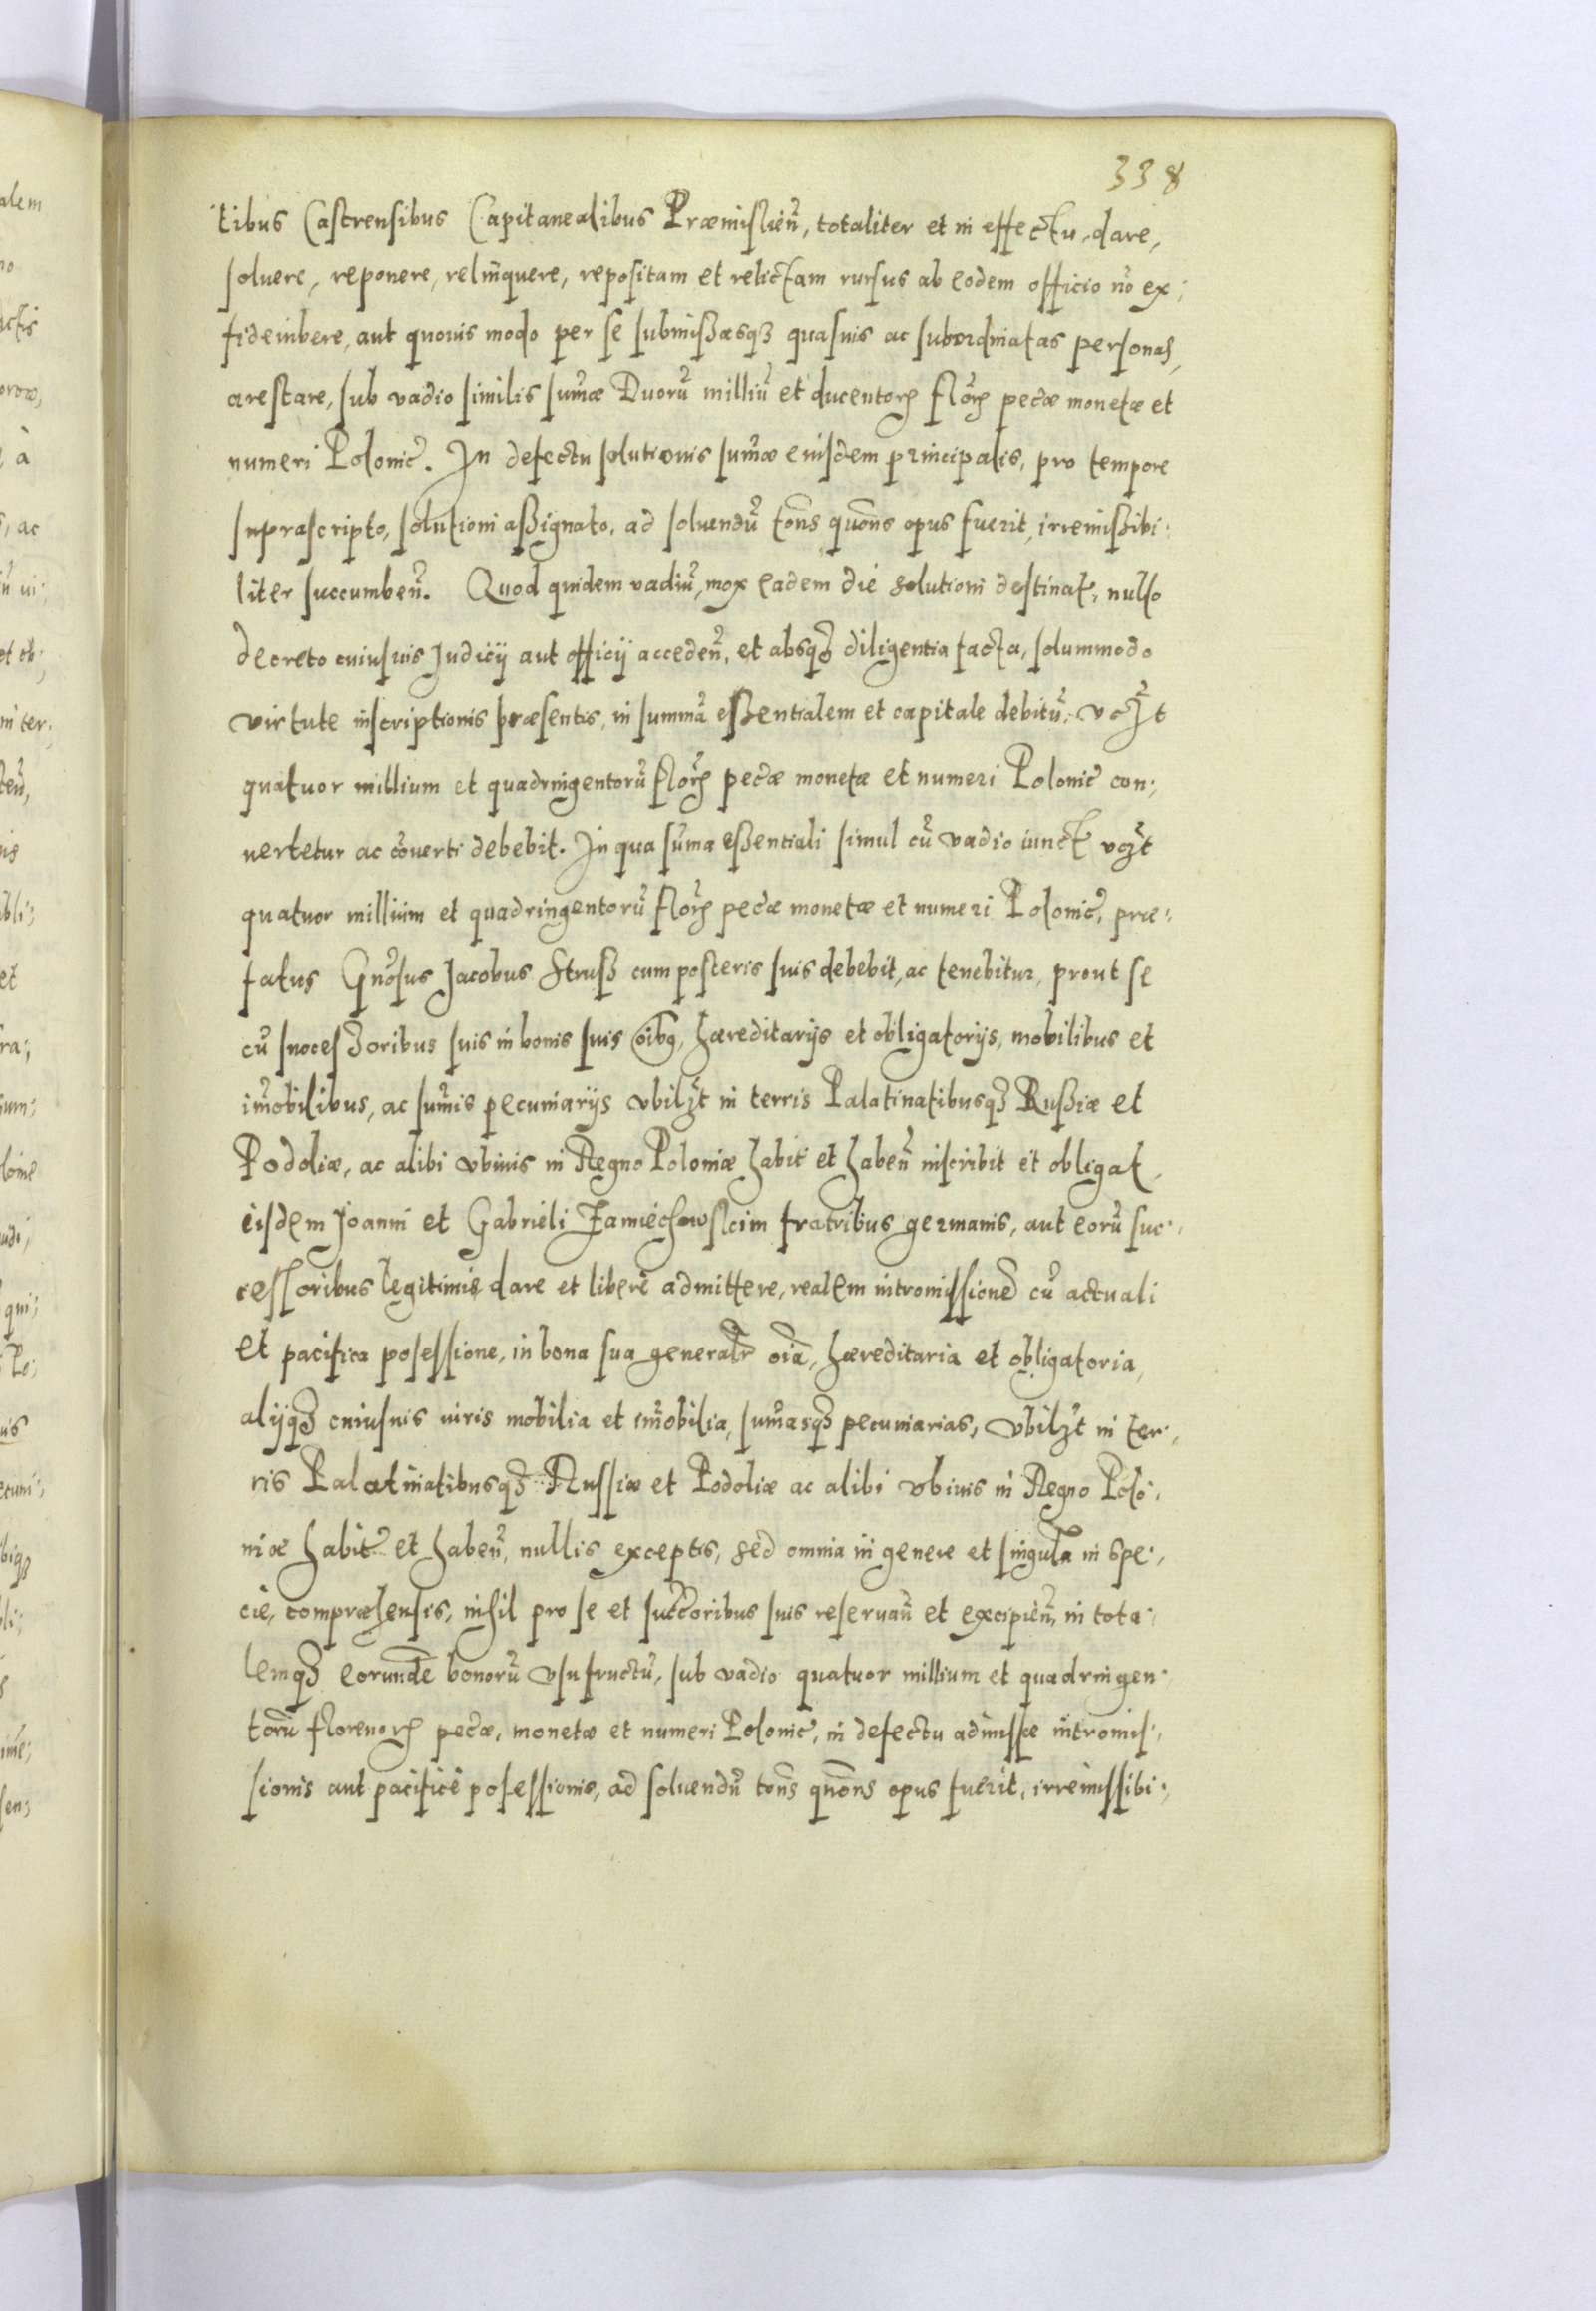 338
tibus Castrensibus Capitanealibus Præmislień, totaliter et in effectu dare,
soluere, reponere, relinquere, repositam et relictam rursus ab eodem officio nō ex,
fideiubere, aut quouis modo per se submissasq₃ quasuis ac subordinatas personas,
arestare, sub vadio similis sum̄æ Duorū milliū et ducentorꝝ florꝝ pecæ monetæ et
numeri Polonic̄. In defectu solutionis sum̄æ eiusdem principalis, pro tempore
suprascripto, solutioni assignato, ad soluendū tot̄ns quot̄ns opus fuerit, irremissibi,
liter succumbeń. Quod quidem vadiū, mox eadem die solutioni destinat, nullo
decreto cuiusuis Judicij aut officij accedeń, et absq₃ diligentia facta, solummodo
virtute inscriptionis præsentis, in summā essentialem et capitale debitū, vczt
quatuor millium et quadringentorū florꝝ pecæ monetæ et numeri Polonic̄ con,
uertetur ac cōuerti debebit. In qua sum̄a essentiali simul cū vadio iunct vczt
quatuor millium et quadringentorū florꝝ pecæ monetæ et numeri Polonic̄, præ,
fatus Gn̄osus Jacobus Struß cum posteris suis debebit, ac tenebitur, prout se
cū succes₃oribus suis in bonis suis oībꝫ, hæreditarijs et obligatorijs, mobilibus et
im̄obilibus, ac sum̄is pecuniarijs vbilzt in terris Palatinatibusq₃ Russiæ et
Podoliæ, ac alibi vbiuis in Regno Poloniæ habit et habeń inscribit et obligat,
eisdem Joanni et Gabrieli Zamiechowskim fratribus germanis, aut eorū suc,
cessoribus legitimis dare et liberè admittere, realem intromissione cū actuali
et pacifica posessione, in bona sua generalr oīa, hæreditaria et obligatoria,
alijq₃ cuiusuis iuris mobilia et im̄obilia, sum̄asq₃ pecuniarias, vbilzt in ter,
ris Palatinatibusq₃ Russiæ et Podoliæ ac alibi vbiuis in Regno Polo,
niæ habit et habeń, nullis exceptis, sed omnia in genere et singula in spe,
cie, compræhensis, nihil pro se et succ̄oribus suis reseruań et excipień, in tota,
lemq₃ eorundē bonorū vsufructū, sub vadio quatuor millium et quadringen,
torū florenorꝝ pecæ, monetæ et numeri Polonic̄, in defectu admissæ intromis,
sionis aut pacificè posessionis, ad soluendū tot̄ns quot̄ns opus fuerit, irremissibi,